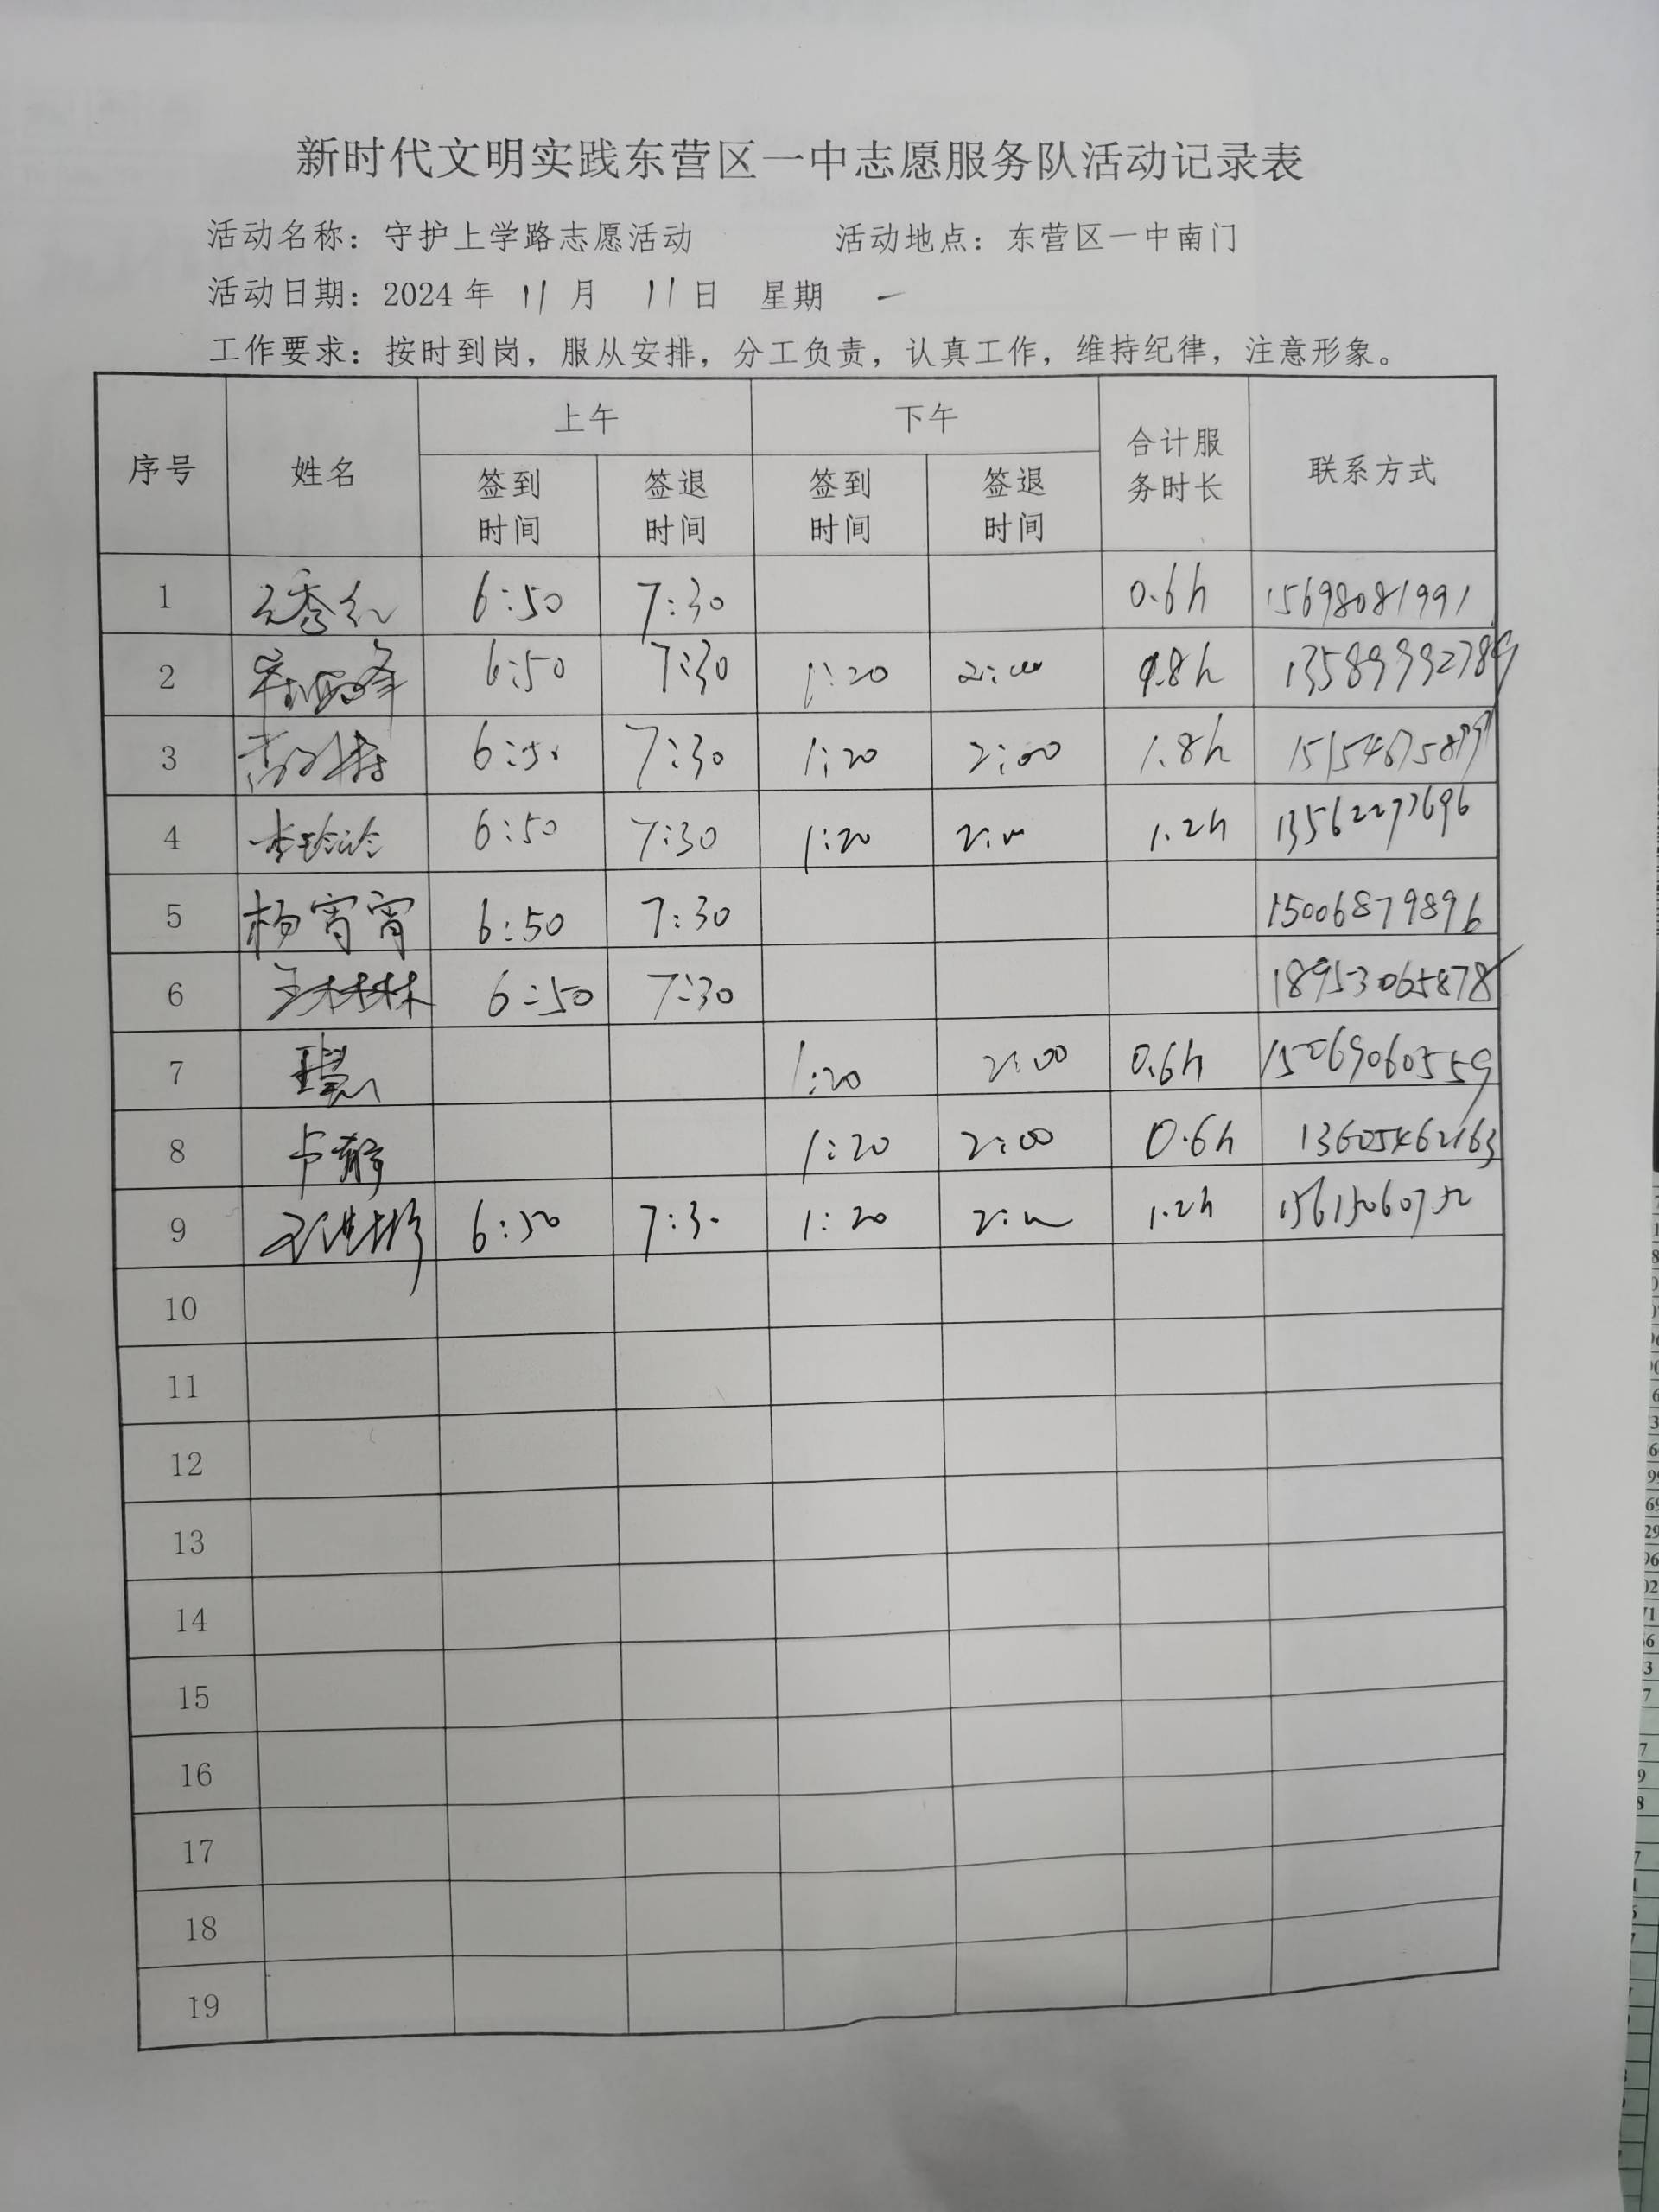 新时代文明实践东营区一中志愿服务队活动记录表
活动名称：守护上学路志愿活动 活动地点：东营区一中南门
活动日期：2024年 11月 11日 星期 一
工作要求：按时到岗，服从安排，分工负责，认真工作，维持纪律，注意形象。
序号 姓名 上午 下午 合计服务时长 联系方式
签到时间 签退时间 签到时间 签退时间
1 6:50 7:30 0.6h 15698081991
2 6:50 7:30 1:20 2:00 13589992789
3 6:50 7:30 1:20 2:00 1.8h
4 李玲玲 6:50 7:30 1:20 2:00 1.2h 13562277696
5 杨宵宵 6:50 7:30 15006879896
6 王林林 6:50 7:30 18953065878
7 1:20 2:00 0.6h 15069060559
8 卢静 1:20 2:00 0.6h 13605462163
9 6:50 7:30 1:20 2:00 1.2h
10
11
12
13
14
15
16
17
18
19